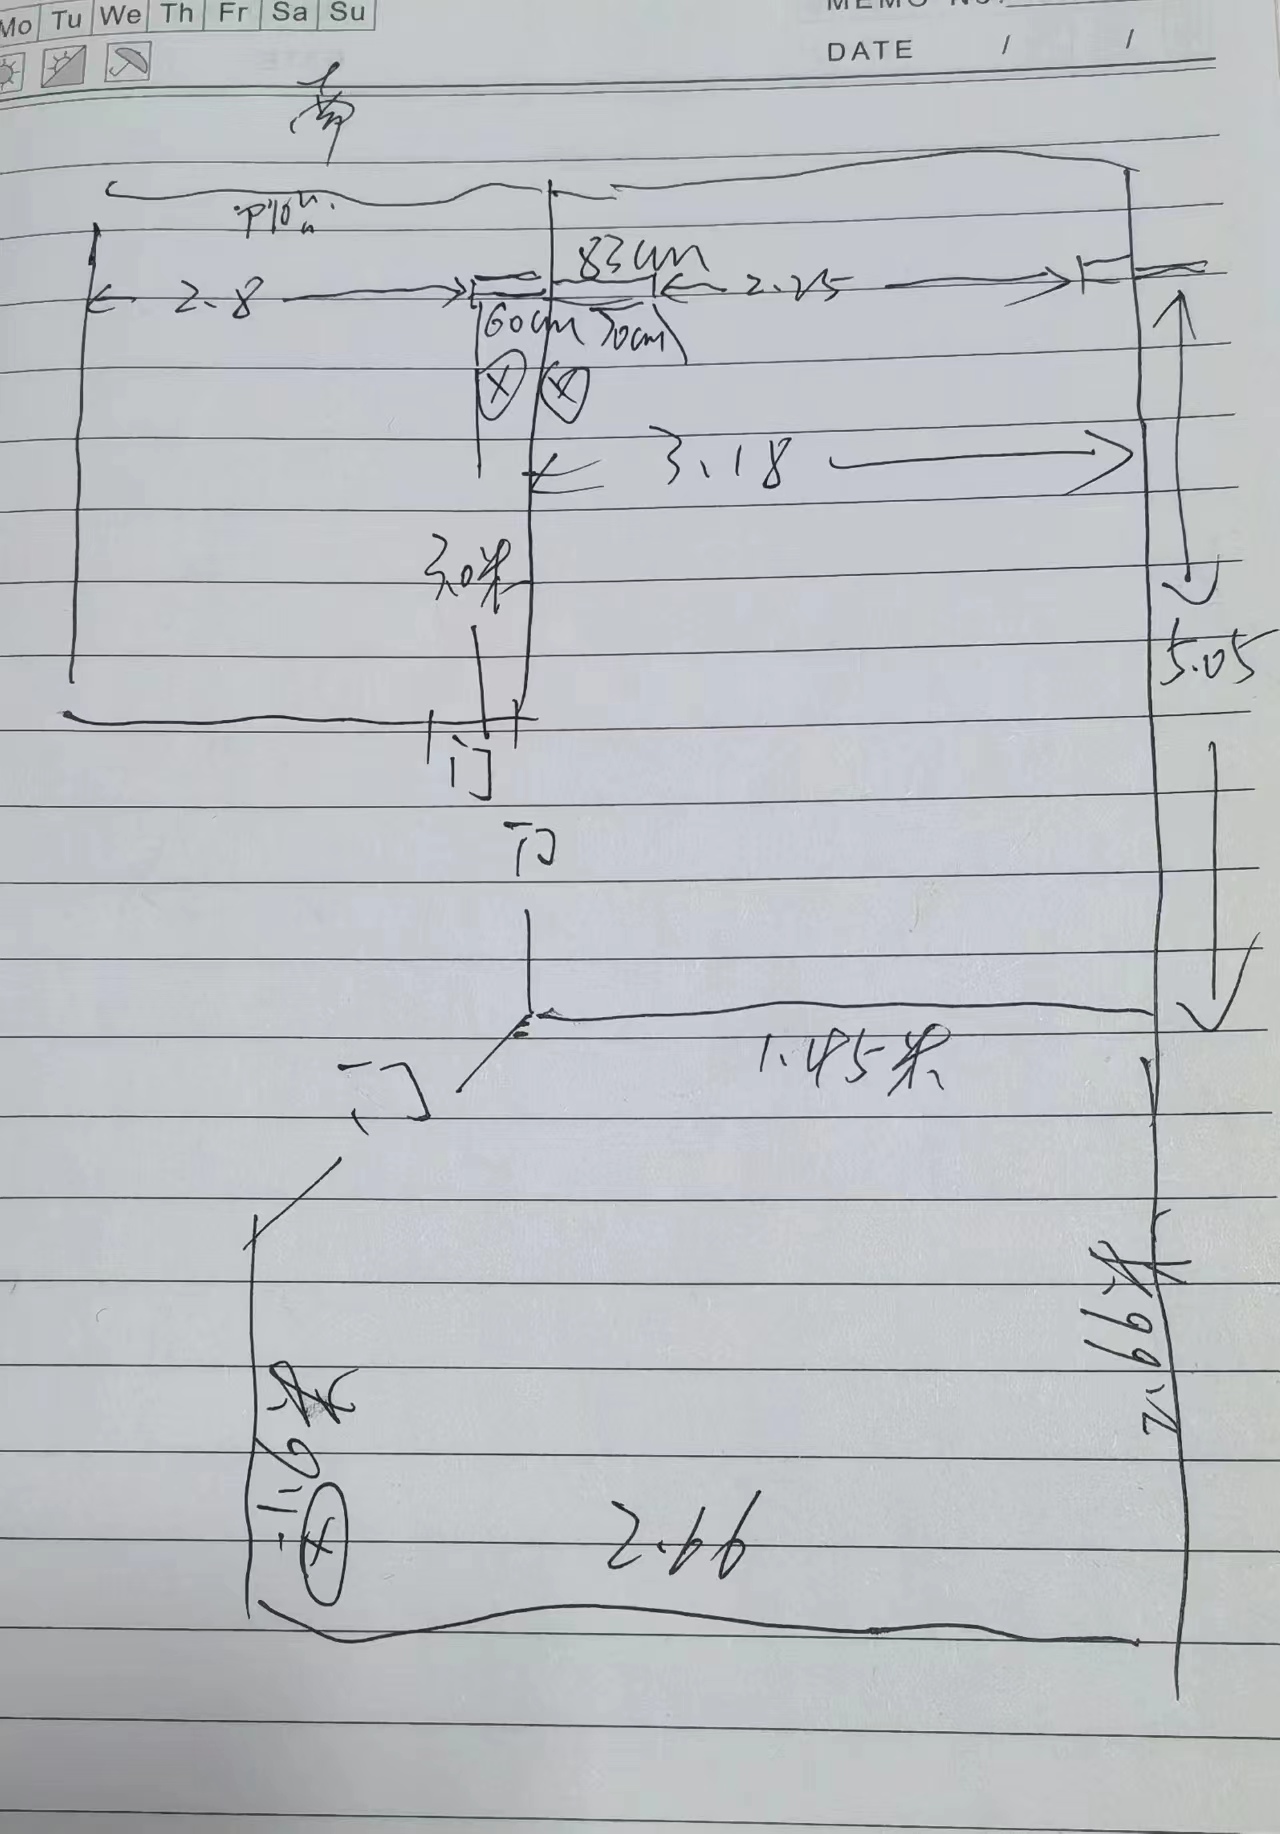 Mo Tu We Th Fr Sa Su
MEMO NO.
DATE / /
83cm
2.8
2.25
60cm 70cm
3.18
3.0米
5.05
门
门
1.45米
门
2.99米
1.9米
2.66